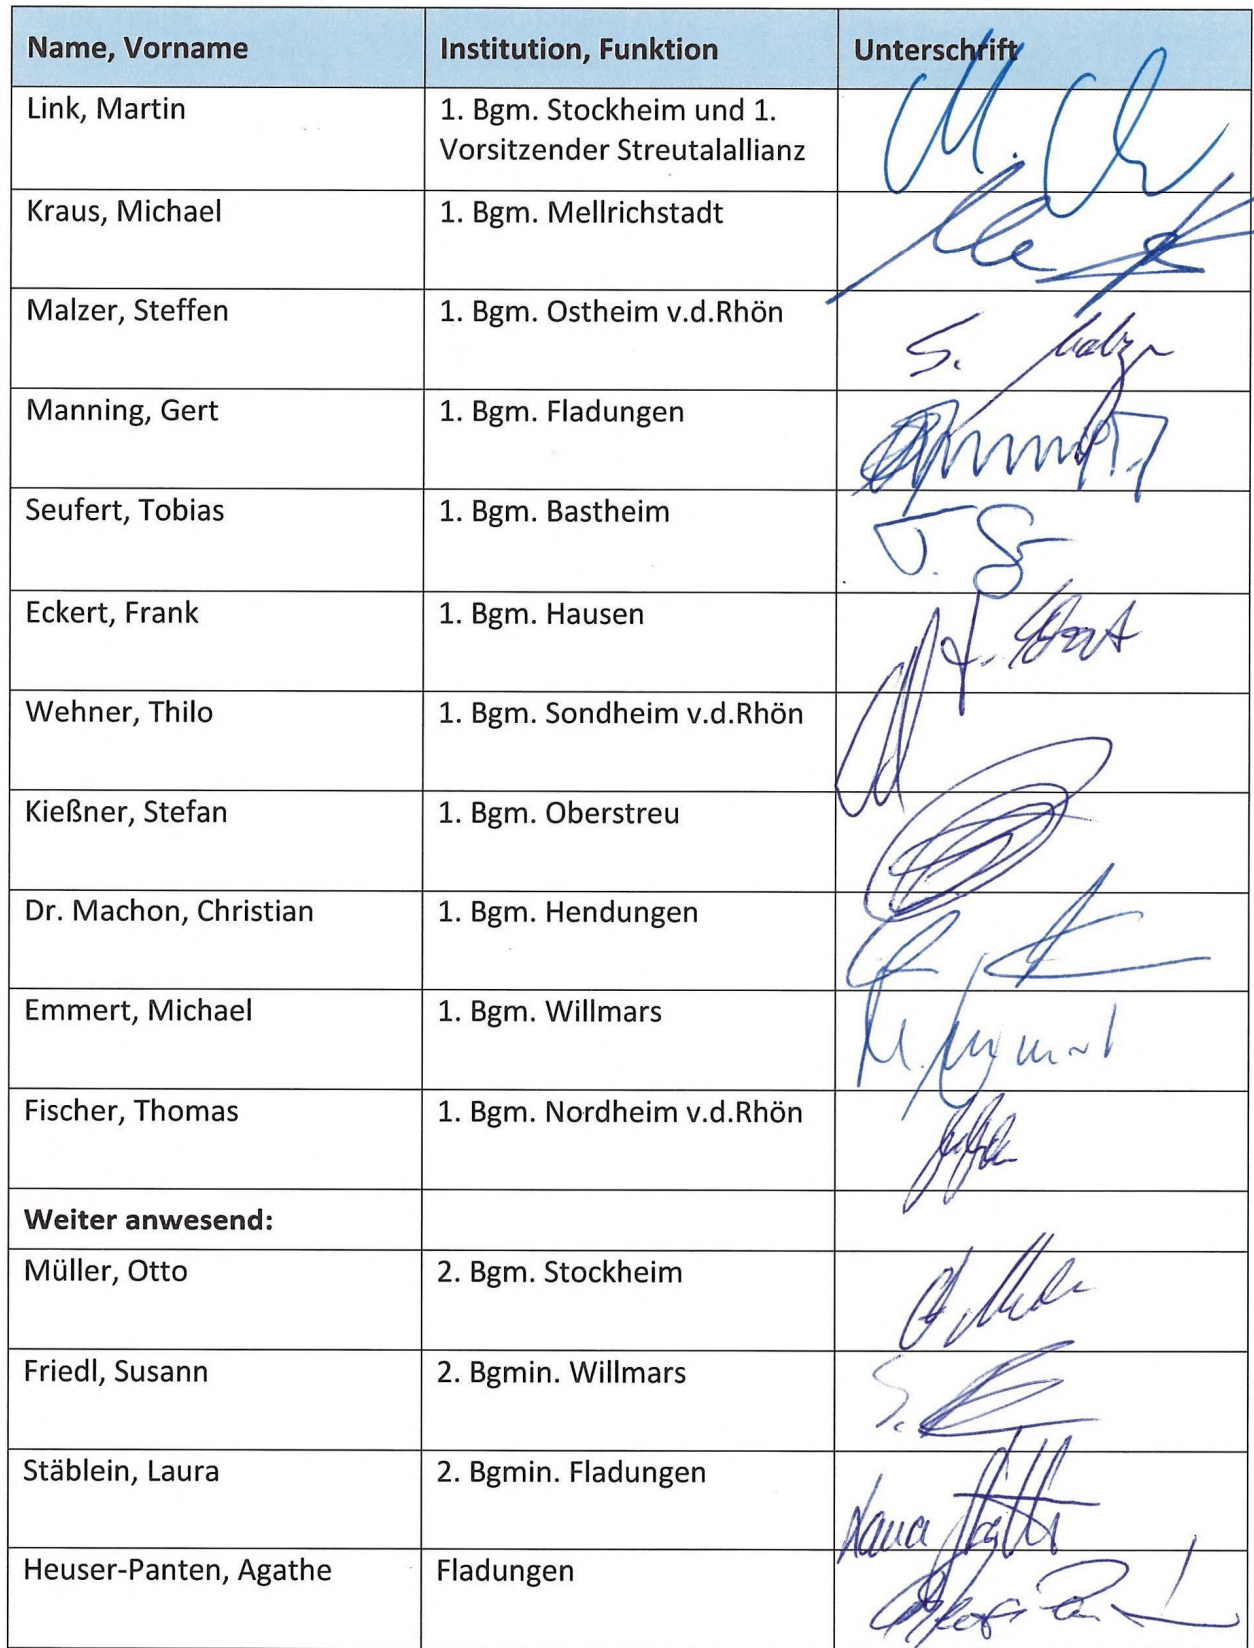 Name, Vorname Institution, Funktion Unterschrift
Link, Martin 1. Bgm. Stockheim und 1.
Vorsitzender Streutalallianz
Kraus, Michael 1. Bgm. Mellrichstadt
Malzer, Steffen 1. Bgm. Ostheim v.d.Rhön
S. Malzer
Manning, Gert 1. Bgm. Fladungen
Seufert, Tobias 1. Bgm. Bastheim
Eckert, Frank 1. Bgm. Hausen
Wehner, Thilo 1. Bgm. Sondheim v.d.Rhön
Kießner, Stefan 1. Bgm. Oberstreu
Dr. Machon, Christian 1. Bgm. Hendungen
Emmert, Michael 1. Bgm. Willmars
Fischer, Thomas 1. Bgm. Nordheim v.d.Rhön
Weiter anwesend:
Müller, Otto 2. Bgm. Stockheim
Friedl, Susann 2. Bgmin. Willmars
Stäblein, Laura 2. Bgmin. Fladungen
Laura
Heuser-Panten, Agathe Fladungen